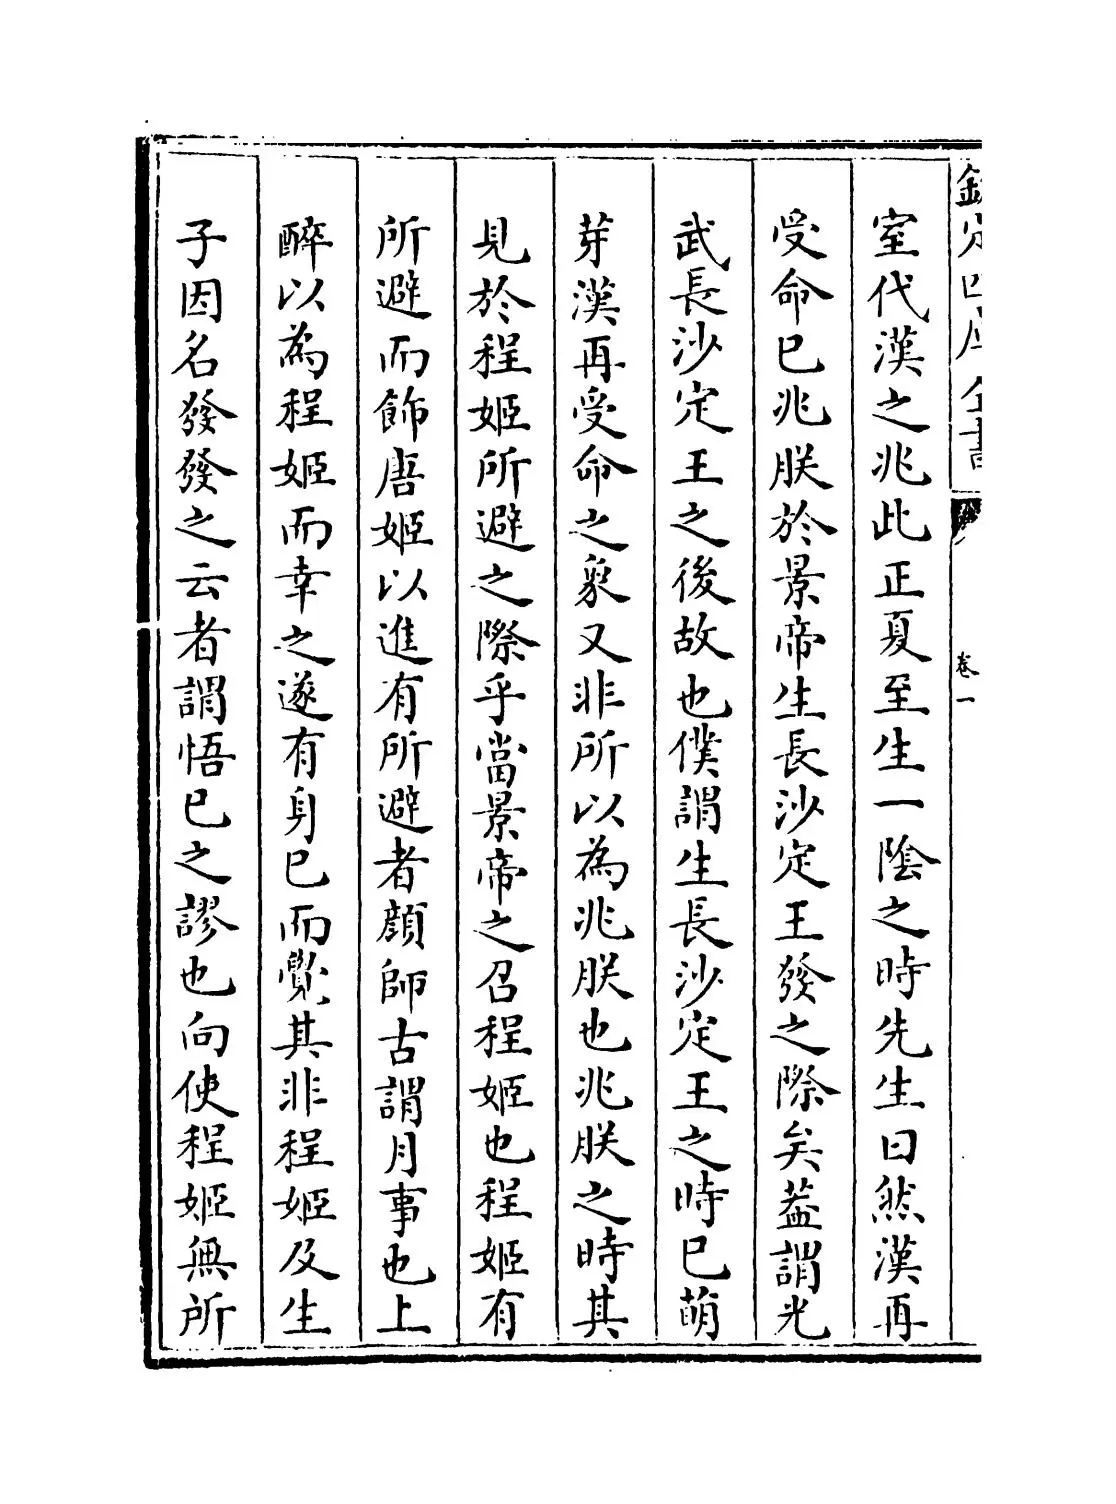 欽定四庫全書
卷一
室代漢之兆此正夏至生一陰之時先生曰然漢再
受命已兆朕於景帝生長沙定王發之際矣葢謂光
武長沙定王之後故也僕謂生長沙定王之時已萌
芽漢再受命之象又非所以為兆朕也兆朕之時其
見於程姬所避之際乎當景帝之召程姬也程姬有
所避而飾唐姬以進有所避者顔師古謂月事也上
醉以為程姬而幸之遂有身已而覺其非程姬及生
子因名發發之云者謂悟已之謬也向使程姬無所